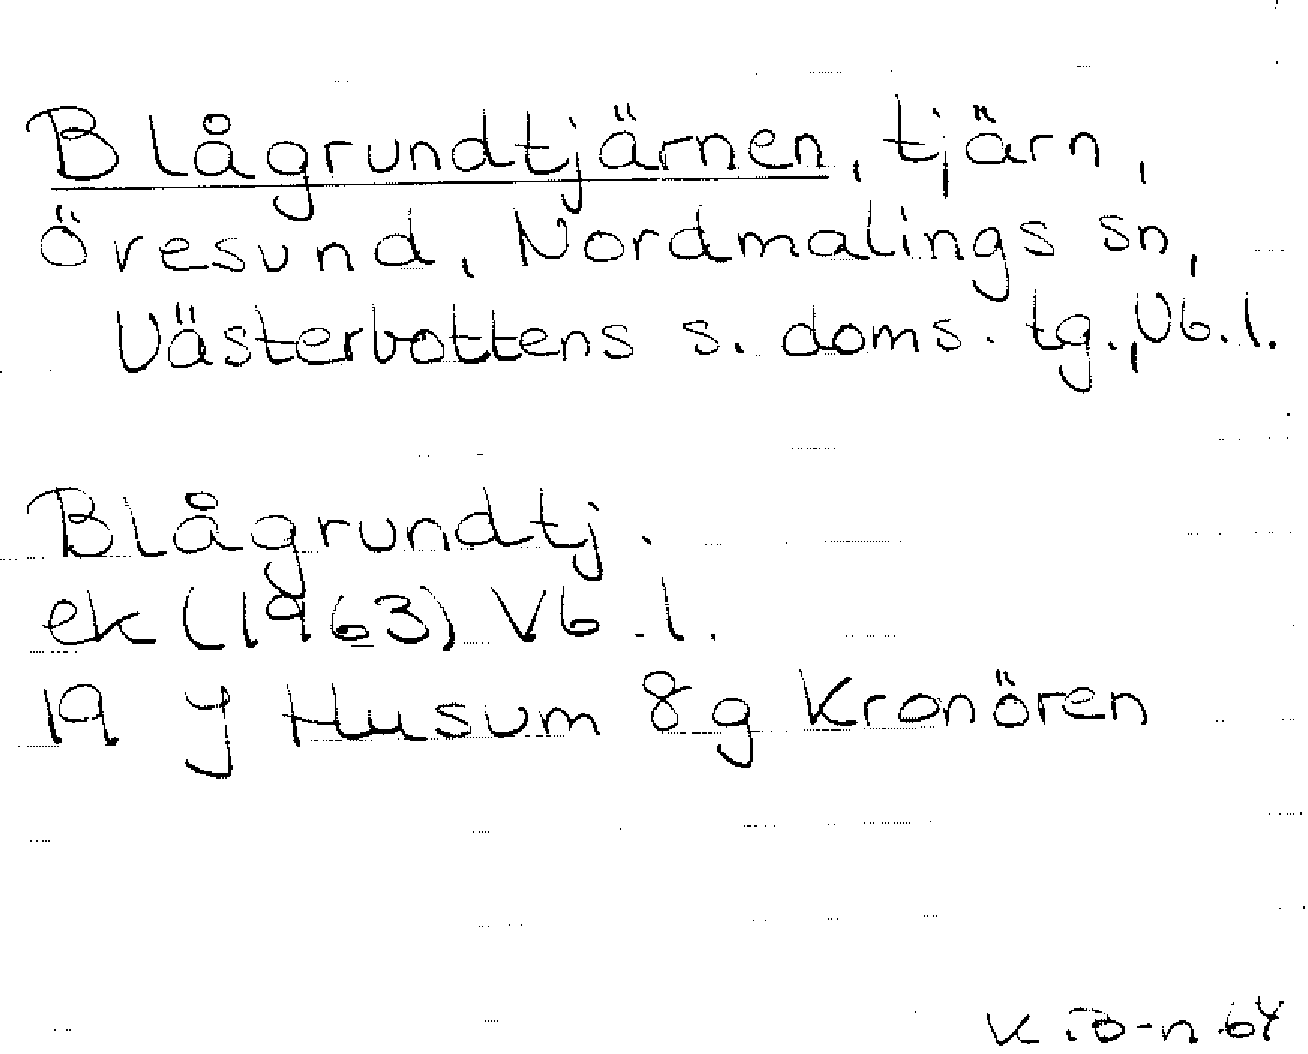 Blågrundtjärnen, tjärn,
Öresund, Nordmalings sn,
Västerbottens s. doms. tg., Vb. l.
Blågrundtj.
ek (1963) Vb. l.
19 J Husum 8g Kronören